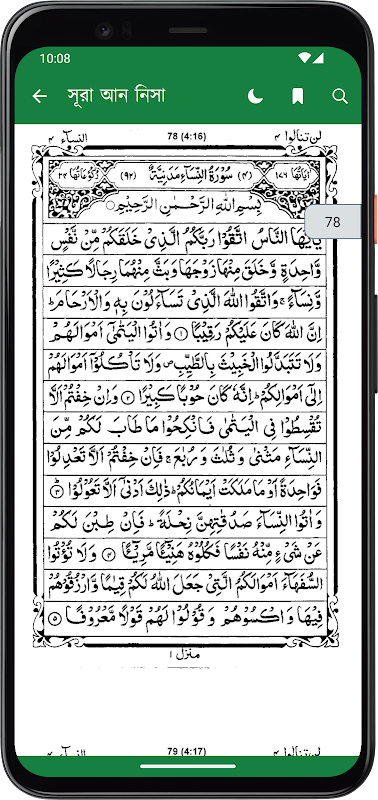 10:08
সূরা আন নিসা
النسآء ٤
78 (4:16)
لن تنالوا ٤
اٰیَاتُهَا ١٧٦
(٤) سُوْرَةُ النِّسَآءِ مَدَنِيَّةٌ (٩٢)
رُكُوْعَاتُهَا ٢٤
بِسْمِ اللهِ الرَّحْمٰنِ الرَّحِيْمِ
78
يٰۤاَيُّهَا النَّاسُ اتَّقُوْا رَبَّكُمُ الَّذِيْ خَلَقَكُمْ مِّنْ نَّفْسٍ
وَّاحِدَةٍ وَّخَلَقَ مِنْهَا زَوْجَهَا وَبَثَّ مِنْهُمَا رِجَالًا كَثِيْرًا
وَّنِسَآءً ۚ وَاتَّقُوا اللهَ الَّذِيْ تَسَآءَلُوْنَ بِهٖ وَالْاَرْحَامَ ؕ
اِنَّ اللهَ كَانَ عَلَيْكُمْ رَقِيْبًا ۝١ وَاٰتُوا الْيَتٰمٰۤى اَمْوَالَهُمْ
وَلَا تَتَبَدَّلُوا الْخَبِيْثَ بِالطَّيِّبِ ۪ وَلَا تَاْكُلُوْۤا اَمْوَالَهُمْ
اِلٰۤى اَمْوَالِكُمْ ؕ اِنَّهٗ كَانَ حُوْبًا كَبِيْرًا ۝٢ وَاِنْ خِفْتُمْ اَلَّا
تُقْسِطُوْا فِي الْيَتٰمٰى فَانْكِحُوْا مَا طَابَ لَكُمْ مِّنَ
النِّسَآءِ مَثْنٰى وَثُلٰثَ وَرُبٰعَ ۚ فَاِنْ خِفْتُمْ اَلَّا تَعْدِلُوْا
فَوَاحِدَةً اَوْ مَا مَلَكَتْ اَيْمَانُكُمْ ؕ ذٰلِكَ اَدْنٰۤى اَلَّا تَعُوْلُوْا ۝٣
وَاٰتُوا النِّسَآءَ صَدُقٰتِهِنَّ نِحْلَةً ؕ فَاِنْ طِبْنَ لَكُمْ
عَنْ شَيْءٍ مِّنْهُ نَفْسًا فَكُلُوْهُ هَنِيْٓـًٔا مَّرِيْٓـًٔا ۝٤ وَلَا تُؤْتُوا
السُّفَهَآءَ اَمْوَالَكُمُ الَّتِيْ جَعَلَ اللهُ لَكُمْ قِيٰمًا وَّارْزُقُوْهُمْ
فِيْهَا وَاكْسُوْهُمْ وَقُوْلُوْا لَهُمْ قَوْلًا مَّعْرُوْفًا ۝٥
منزل ١
النسآء ٤
79 (4:17)
لن تنالوا ٤